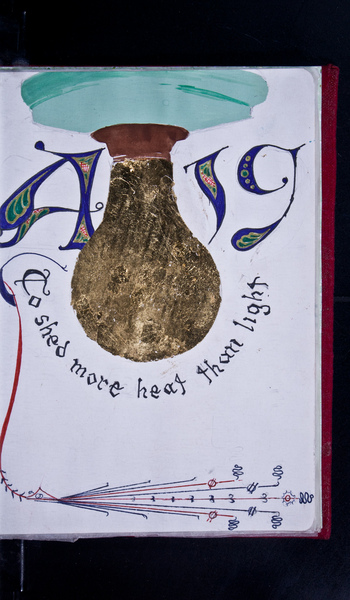 A 19
To shed more heat than light